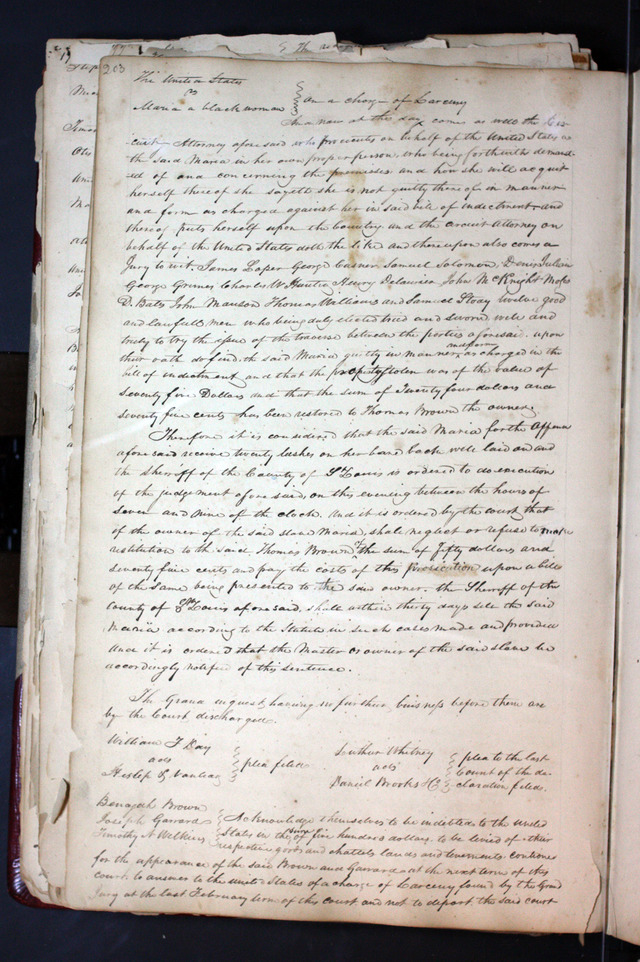 203
The United States
vs
Maria a black woman } on a charge of Larceny
And now at this day comes as well the Cir-
cuit Attorney aforesaid who prosecutes on behalf of the United States as
the said Maria in her own proper person, who being forthwith demand-
ed of and concerning the premises and how she will acquit
herself thereof she sayeth she is not guilty thereof in manner
and form as charged against her in said bill of indictment and
thereof puts herself upon the Country and the circuit Attorney on
behalf of the United States doth the like and thereupon also comes a
Jury to wit. James Loper George Casner Samuel Solomon, Denis Julien
George Grimes Charles W Hunter Henry Delaurier John McKnight Moses
D. Bates John Manson Thomas Williams and Samuel Stoay twelve good
and lawfull men who being duly elected tried and sworn well and
truly to try the issue of the traverse between the parties aforesaid. upon
their oath do find, the said Maria guilty in manner and form as charged in the
bill of indictment and that the property stolen was of the value of
Seventy five Dollars and that the sum of Twenty four dollars and
seventy five cents has been restored to Thomas Brown the owner,
Therefore it is considered that the said Maria for the offence
aforesaid receive twenty lashes on her bare back well laid on and
the Sherriff of the County of St Louis is ordered to do execution
of the judgement aforesaid, on this evening between the hours of
seven and nine of the clock. And it is ordered by the court that
if the owner of the said slave Maria, shall neglect or refuse to make
restitution to the said Thomas Brown the sum of fifty dollars and
seventy five cents and pay the costs of this prosecution upon a bill
of the same being presented to the said owner. the Sherriff of the
County of St Louis aforesaid, shall within thirty days sell the said
Maria according to the Statute in such cases made and provided
And it is ordered that the Master or owner of the said slave be
accordingly notified of this sentence.
The Grand inquest having no further business before them are
by the Court discharged.
William T Day
ads } plea filed
Hislop & Vanlieg
Arthur Whitney
ads
Daniel Brooks & Co } plea to the last
Count of the de-
claration filed.
Benajah Brown
Joseph Garrard
Timothy A Wilkins } Acknowledge themselves to be indebted to the United
States in the sum of five hundred dollars. to be levied of their
respective goods and chattels lands and tenements. conditioned
for the appearance of the said Brown and Garrard at the next term of this
court to answer to the United States of a charge of Larceny found by the Grand
Jury at the last February term of this court and not to depart the said court